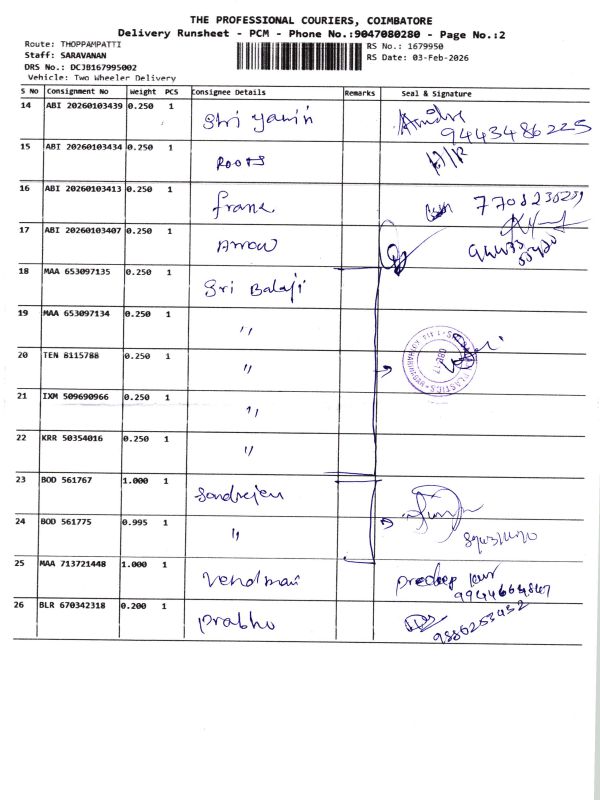 THE PROFESSIONAL COURIERS, COIMBATORE
Delivery Runsheet - PCM - Phone No.:9047080280 - Page No.:2
Route: THOPPAMPATTI
Staff: SARAVANAN
DRS No.: DCJB167995002
Vehicle: Two Wheeler Delivery
RS No.: 1679950
RS Date: 03-Feb-2026
S No Consignment No Weight PCS Consignee Details Remarks Seal & Signature
14 ABI 20260103439 0.250 1 Shri 9443486225
15 ABI 20260103434 0.250 1 ROOTS
16 ABI 20260103413 0.250 1 frame
17 ABI 20260103407 0.250 1 Arrow
18 MAA 653097135 0.250 1 Sri Balaji
19 MAA 653097134 0.250 1 "
20 TEN B115788 0.250 1 "
21 IXM 509690966 0.250 1 "
22 KRR 50354016 0.250 1 "
23 BOD 561767 1.000 1
24 BOD 561775 0.995 1 "
25 MAA 713721448 1.000 1 Pradeep
26 BLR 670342318 0.200 1 Prabhu 9886253432